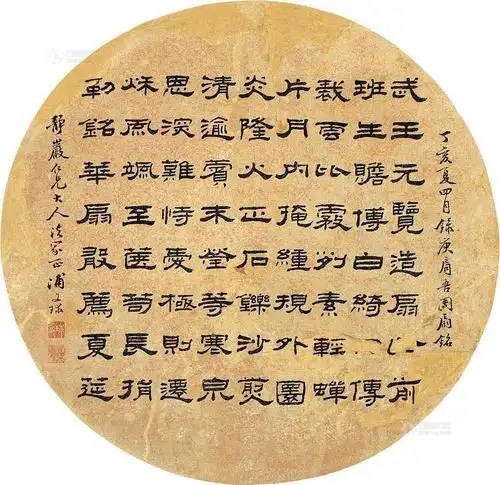 丁亥夏四月錄庾肩吾團扇銘
武王元覽造扇前
班生贍博白綺傳
裁雲比霧列素輕蟬
片月內掩緟規外圓
炎隆火正石鑠沙煎
清逾賓末瑩等寒泉
恩深難恃愛極則遷
秌風颯至篋笥長捐
勒銘華扇敢薦夏筵
靜巖仁兄大人法家正 浦文球